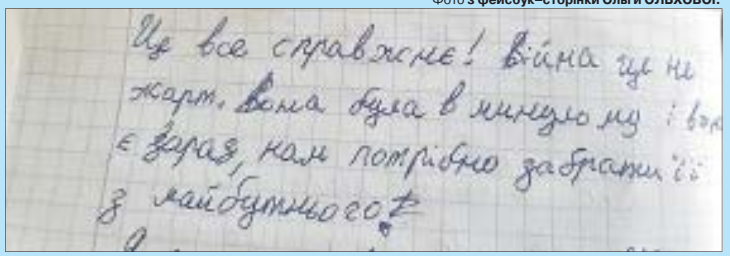 Фото з фейсбук-сторінки Ольги ОЛЬХОВОЇ.
Це все справжнє! Війна це не
жарт. Вона була в минулому і вон
є зараз, нам потрібно забрати її
з майбутнього!